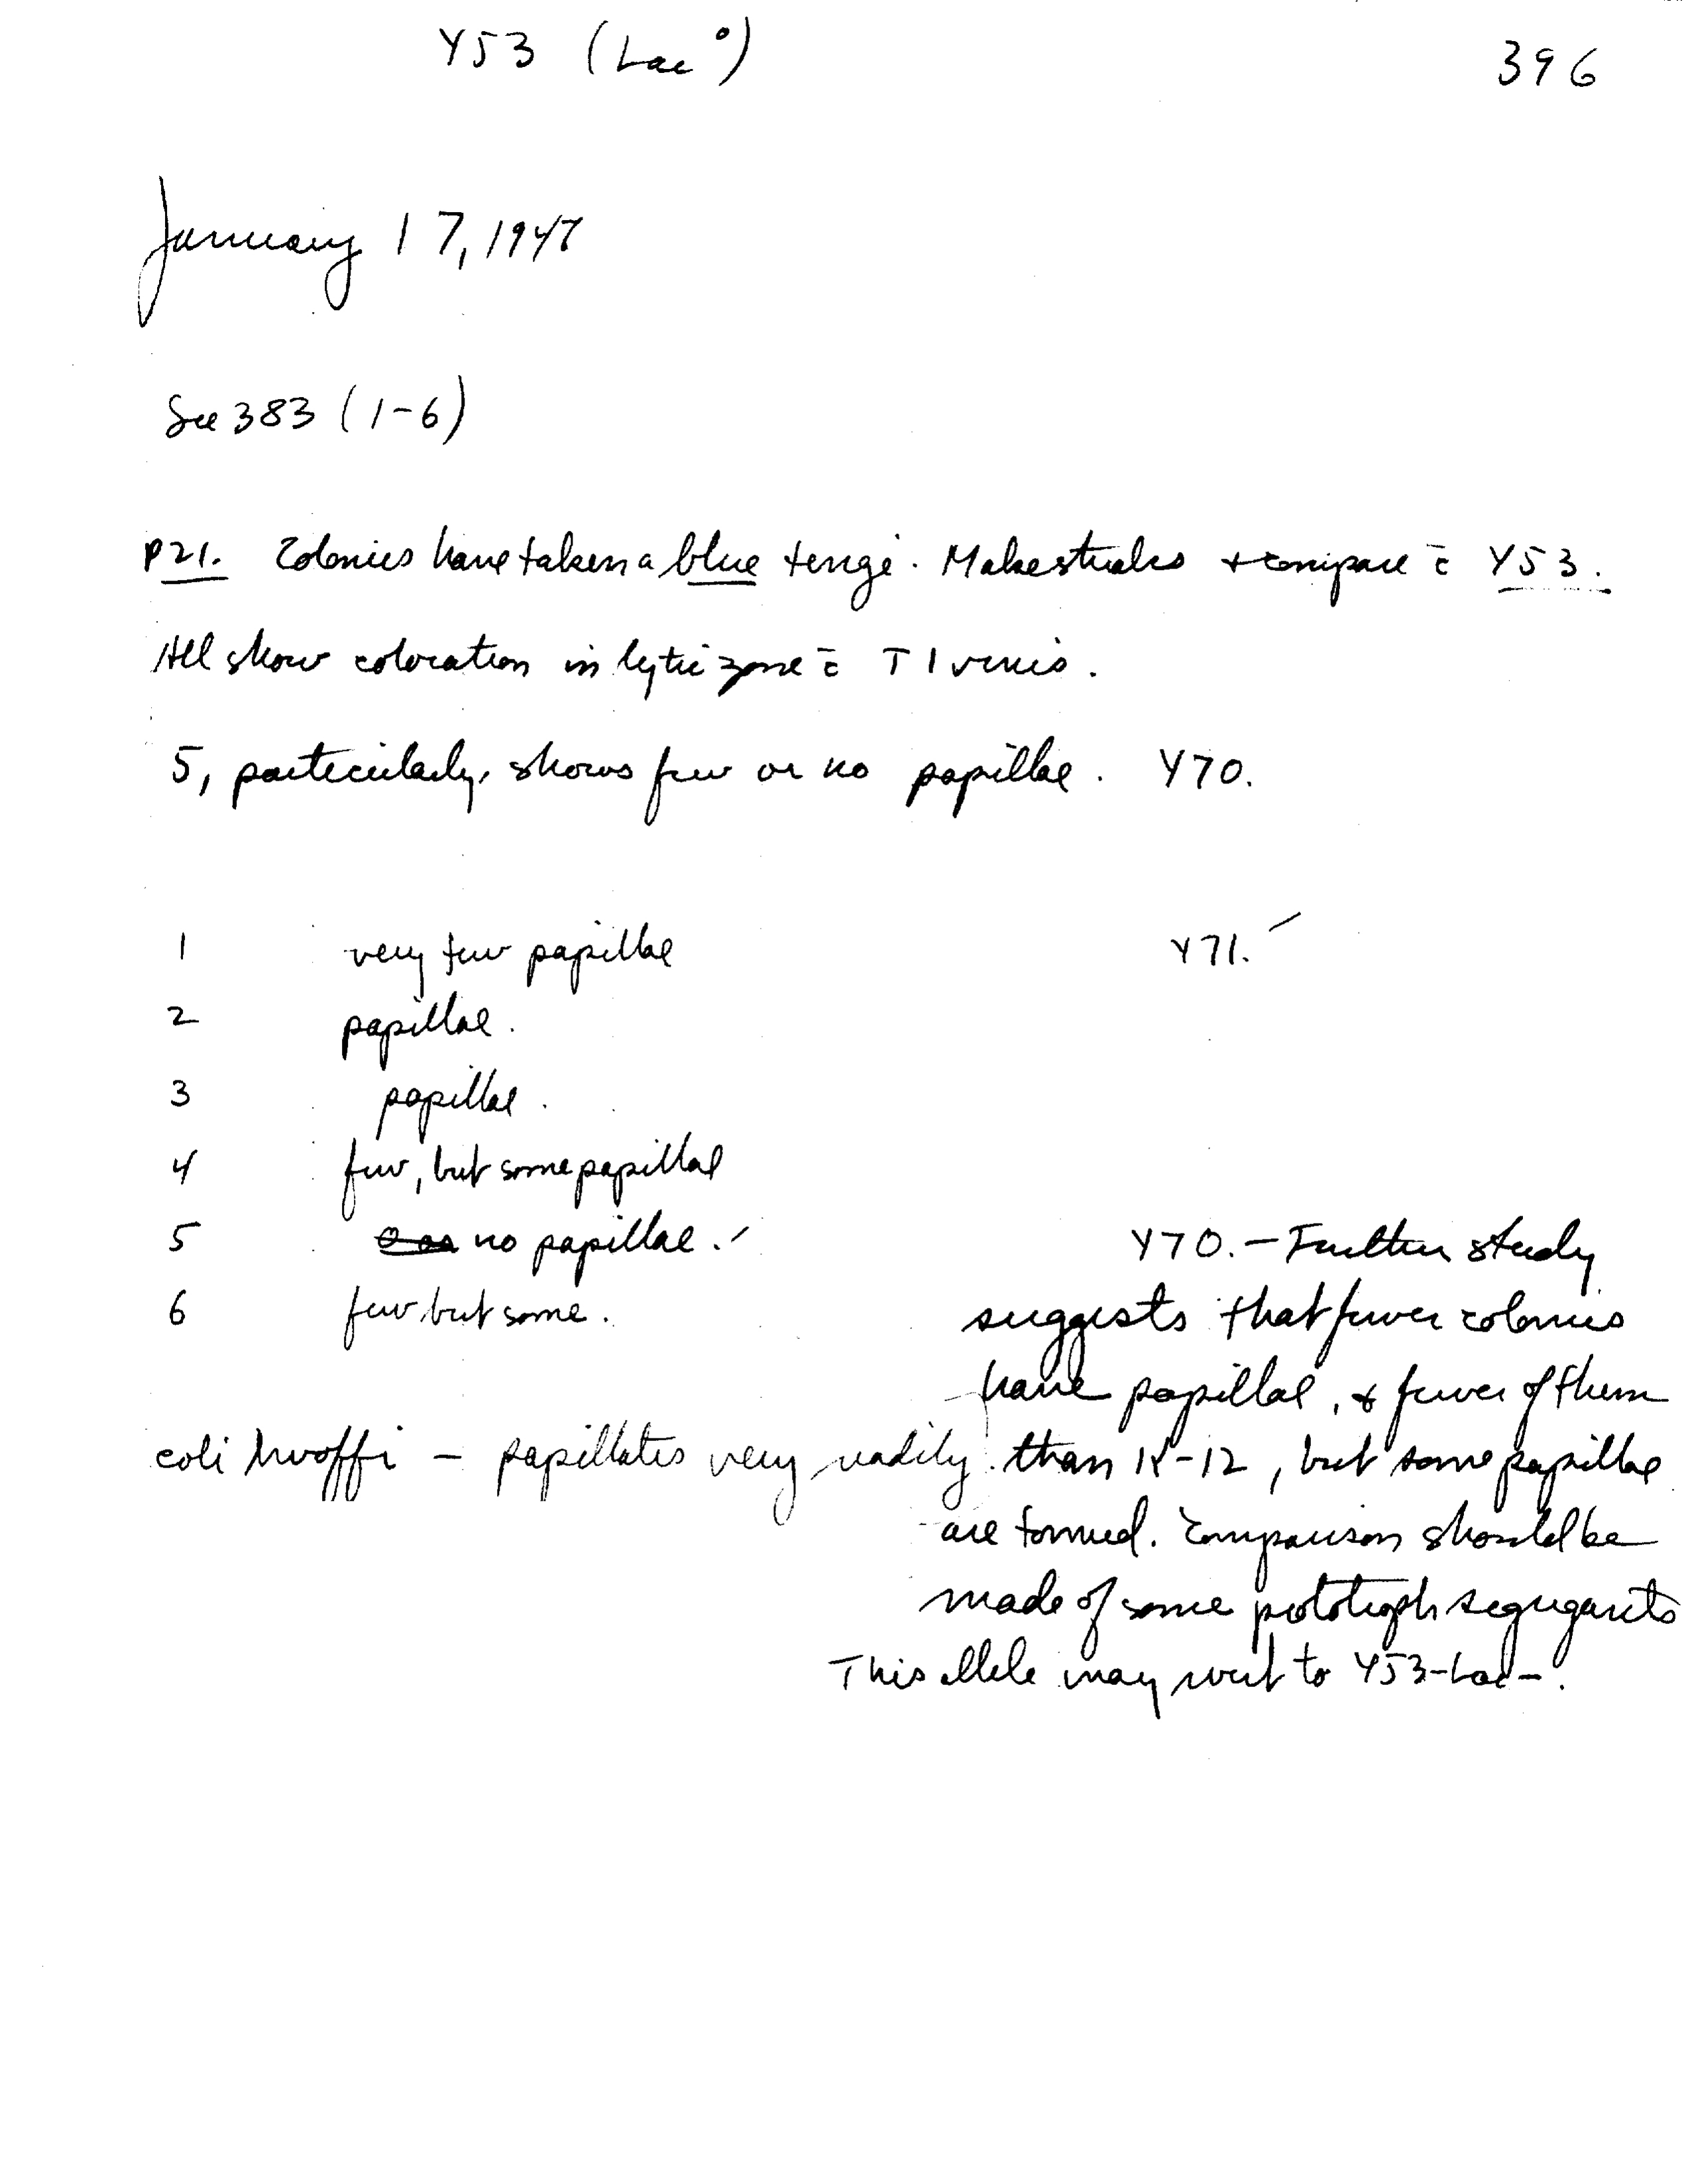 Y53 (Lac°)
396
January 17, 1947
See 383 (1-6)
P21. Colonies have taken a blue tenge. Make streaks + compare c̄ Y53.
All show coloration in lytic zone c̄ T1 virus.
5, particularly, shows few or no papillae. Y70.
1 very few papillae Y71.
2 papillae.
3 papillae.
4 few, but some papillae
5 no papillae.
6 few but some.
Y70. - Further study
suggests that fewer colonies
have papillae, & fewer of them
than K-12, but some papillae
are formed. Comparison should be
made of some prototroph segregants
This allele may revert to Y53-Lac-.
coli lwoffi - papillates very readily